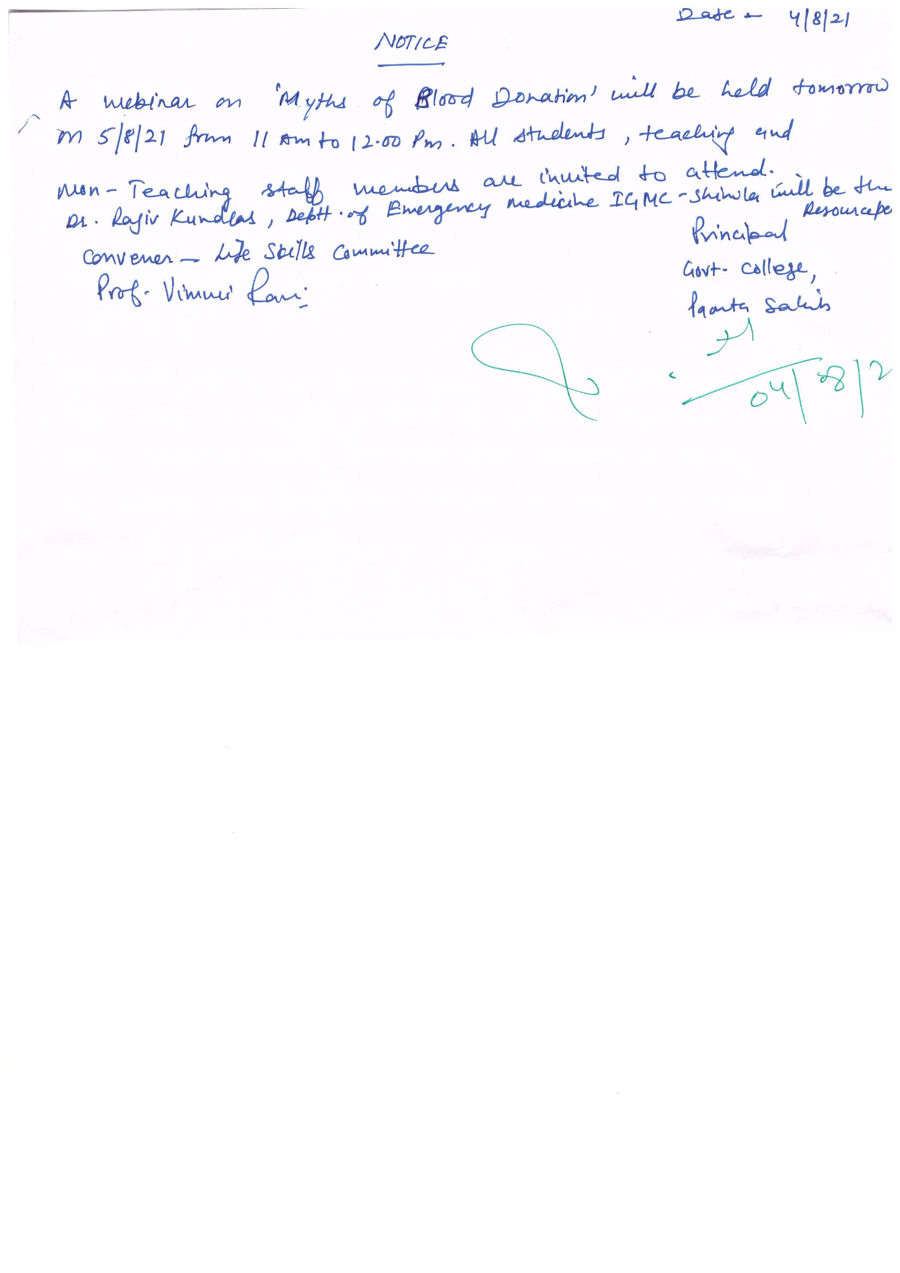 Date - 4/8/21
NOTICE
A webinar on 'Myths of Blood Donation' will be held tomorrow
on 5/8/21 from 11 Am to 12.00 Pm. All students, teaching and
non-Teaching staff members are invited to attend.
Dr. Rajiv Kundlas, Deptt. of Emergency medicine IGMC-Shimla will be the
Resource
Principal
Convener - Life Skills Committee
Govt. College,
Prof. Vimmi Rani
Paonta Sahib
04/08/2